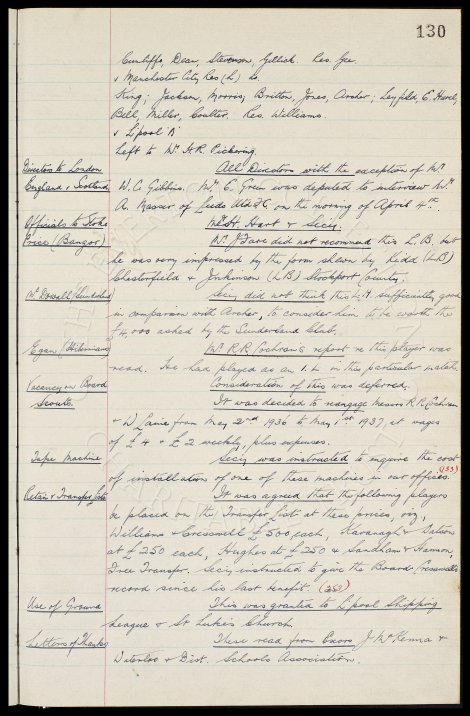 130
Cunliffe, Dean, Stevenson, Gillick. Res. Gee.
v Manchester City Res (H) do.
King; Jackson, Morris; Britton, Jones, Archer; Leyfield, C. Hurel,
Bell, Miller, Coulter. Res. Williams.
v L'pool 'A'
Left to Mr. H.R. Pickering.
Directors to London
England v Scotland
All Directors with the exception of Mr.
W.C. Gibbins. Mr. C. Green was deputed to interview Mr.
A. Masser of Leeds Utd FC on the morning of April 4th.
Officials to Stoke
Messrs. Hart & Secy.
Price (Bangor)
Mr. J. Fare did not recommend this L.B. but
he was very impressed by the form shewn by Kidd (LB)
Chesterfield & Jenkinson (LB) Stockport County.
McDowall (Sunderland)
Secy. did not think this L.H. sufficiently good
in comparison with Archer, to consider him to be worth the
£4,000 asked by the Sunderland Club.
Egan (Hibernians)
Mr. R.R. Cochran's report re this player was
read. He had played as an I.L. in this particular match.
Consideration of this was deferred.
Vacancy on Board
Scouts.
It was decided to reengage Messrs R.R. Cochran
& W. Laine from May 2nd 1936 to May 1st 1937, at wages
of £4 & £2 weekly, plus expenses.
Tape Machine
Secy. was instructed to enquire the cost
(133)
of installation of one of these machines in our offices.
Retain & Transfer Lists
It was agreed that the following players
be placed on the Transfer List at these prices, viz,
Williams & Cresswell £500 each, Kavanagh & Watson
at £250 each, Hughes at £250 & Sandham & Hannon,
Free Transfer. Secy. instructed to give the Board Cresswell's
record since his last benefit.
Use of Ground
This was granted to L'pool Shipping
League & St Luke's Church.
Letters of Thanks
These read from Exors J. McKenna &
Waterloo & Dist. Schools Association.